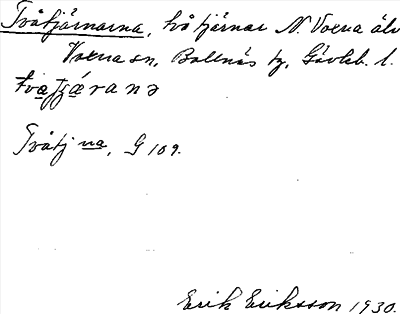 Tvåtjärnarna, två tjärnar N. Voxna älv
Voxna sn, Bollnäs tg, Gävleb. l.
tvåtjä́ranə
Tvåtj na, G 109.
Erik Eriksson 1930.